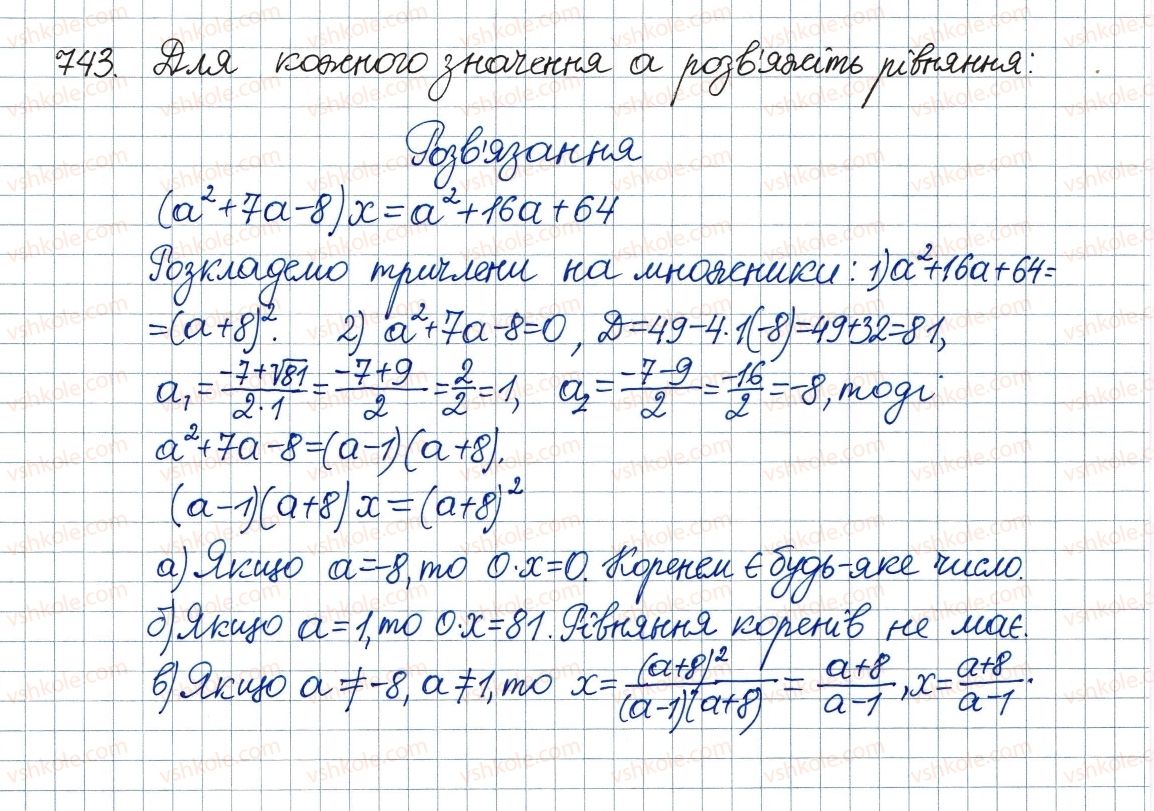 743. Для кожного значення a розв'яжіть рівняння:
Розв'язання
(a²+7a-8)x=a²+16a+64
Розкладемо тричлени на множники: 1) a²+16a+64=
=(a+8)². 2) a²+7a-8=0, D=49-4·1(-8)=49+32=81,
a₁=(-7+√81)/(2·1)=(-7+9)/2=2/2=1, a₂=(-7-9)/2=-16/2=-8, тоді
a²+7a-8=(a-1)(a+8).
(a-1)(a+8)x=(a+8)²
а) Якщо a=-8, то 0·x=0. Коренем є будь-яке число.
б) Якщо a=1, то 0·x=81. Рівняння коренів не має.
в) Якщо a≠-8, a≠1, то x=(a+8)²/((a-1)(a+8))=(a+8)/(a-1), x=(a+8)/(a-1).